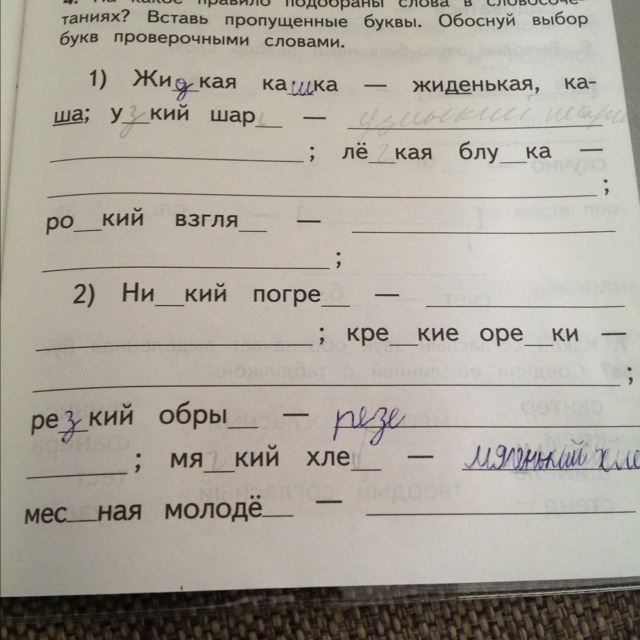 4. На какое правило подобраны слова в словосоче-
таниях? Вставь пропущенные буквы. Обоснуй выбор
букв проверочными словами.
1) Жидкая кашка — жиденькая, ка-
ша; узкий шар__ — узенький шарик
____ ; лё__кая блу__ка —
____ ;
ро__кий взгля__ — ____
____ ;
2) Ни__кий погре__ — ____
____ ; кре__кие оре__ки —
____ ;
резкий обры__ — резе
____ ; мя__кий хле__ — мягенький хле
мес__ная молодё__ — ____